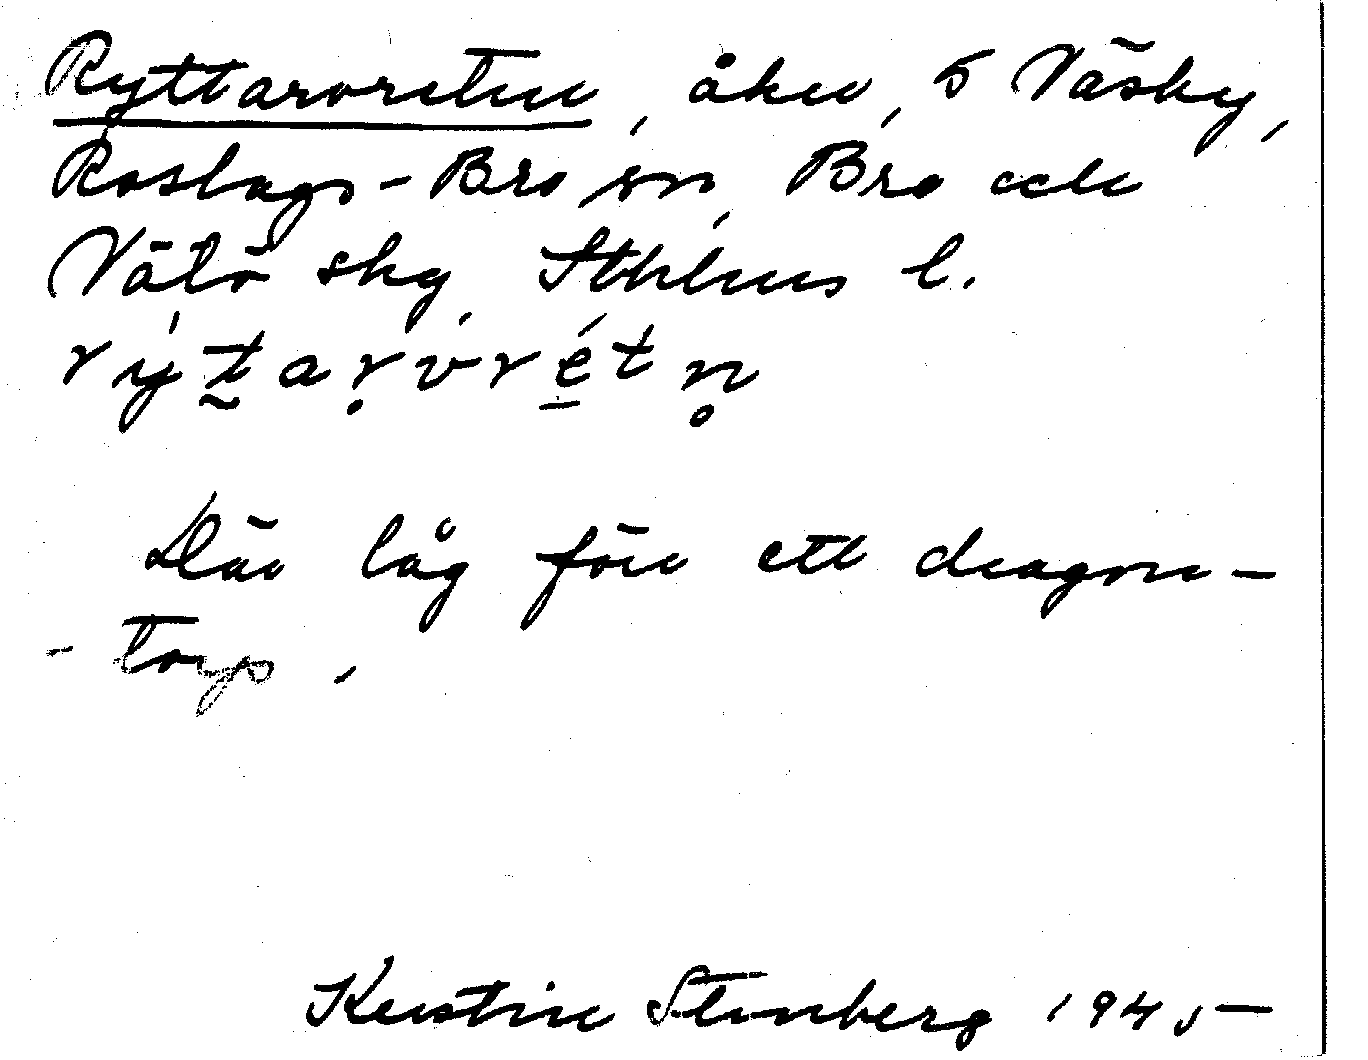 Ryttarvreten, åker, 5 Väsby,
Roslags-Bro sn, Bro och
Vätö skg, Sthlms l.
rýtarvrétn̥

Där låg förr ett dragon-
- torp.

Kerstin Stenberg 1945